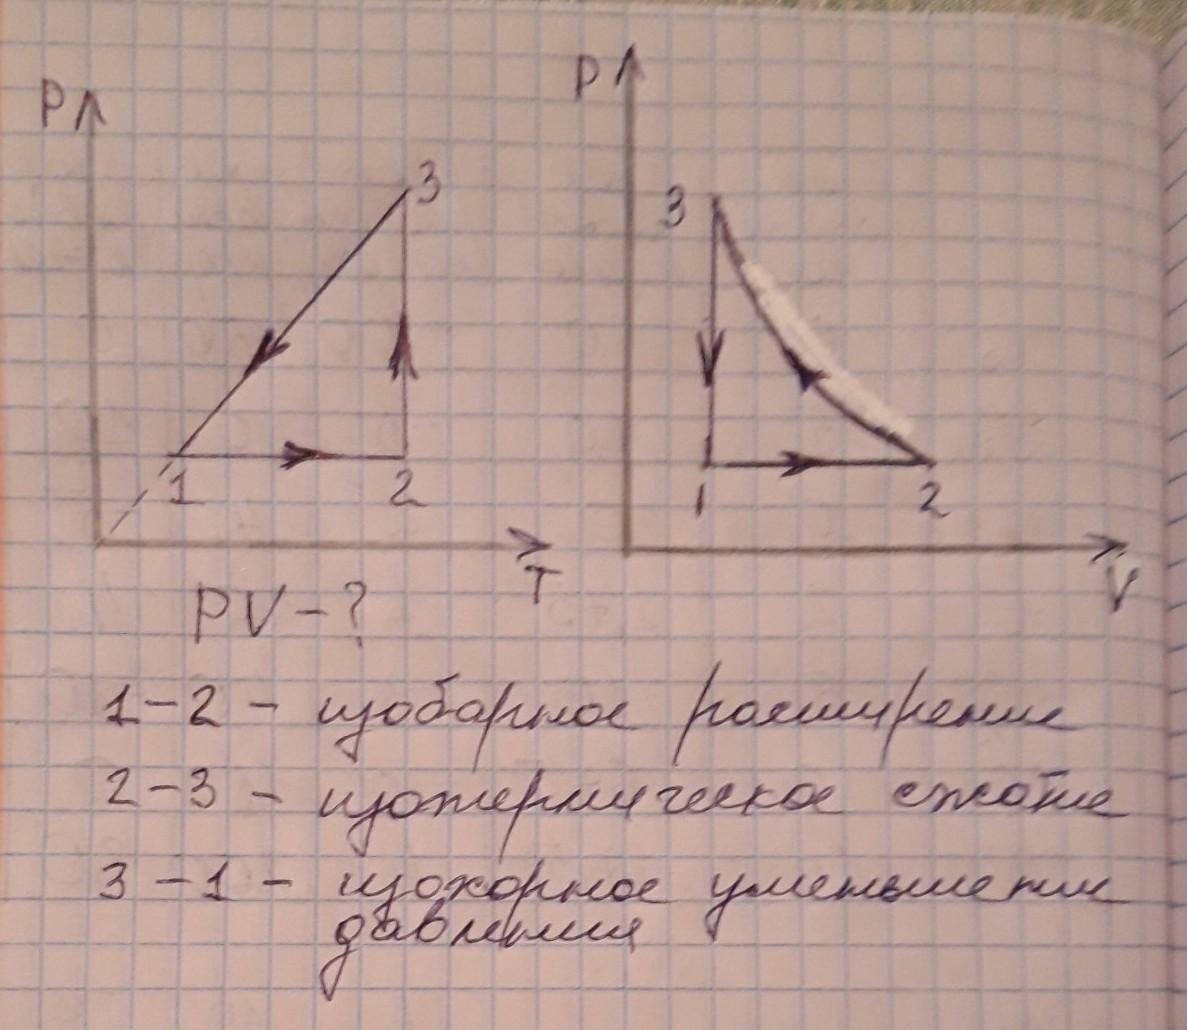 P
3
1
2
T
P
3
1
2
V
PV-?
1-2 - изобарное расширение
2-3 - изотермическое сжатие
3-1 - изохорное уменьшение
давления